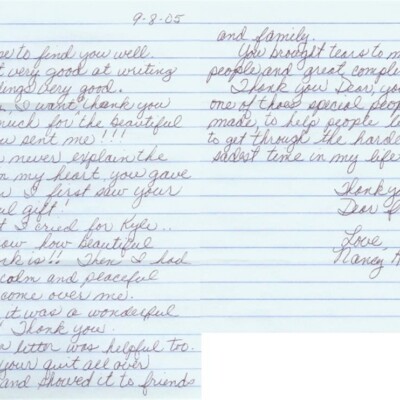 9-8-05
pe to find you well
t very good at writing
dings very good.
I want thank you
much for the beautiful
u sent me!!!
never explain the
in my heart, you gave
I first saw your
ful gift!
t I cried for Kyle..
now how beautiful
rk is!! Then I had
calm and peaceful
come over me.
it was a wonderful
! Thank you.
letter was helpful too.
your quit all over
and showed it to friends
and family.
You brought tears to m
people and great comple
Thank you Dear, yo
one of those special peop
made, to help people le
to get through the harde
sadest time in my life
Thank y
Dear
Love,
Nancy A